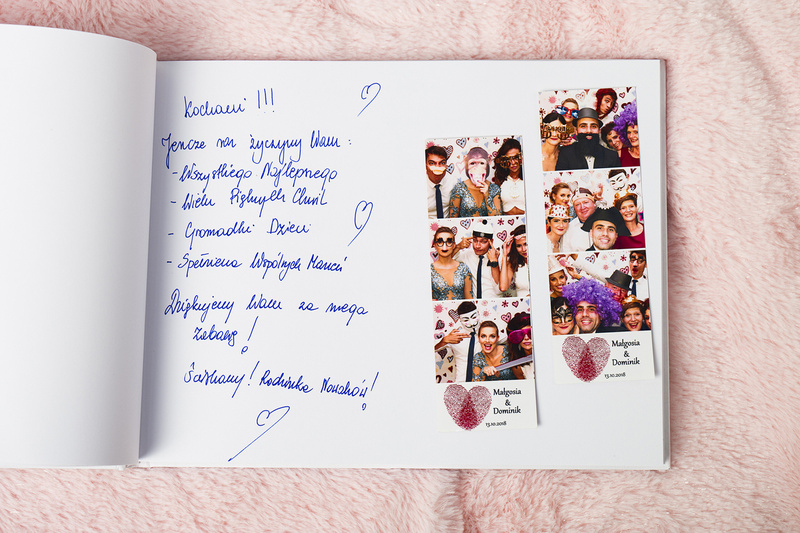 Kochani !!!
Jeszcze raz życzymy Wam :
- Wszystkiego Najlepszego
- Wielu Pięknych Chwil
- Gromadki Dzieci
- Spełnienia Wspólnych Marzeń
Dziękujemy Wam za mega
zabawę !
Ściskamy ! Rodzinka Nowaków !
Małgosia
&
Dominik
13.10.2018
Małgosia
&
Dominik
13.10.2018